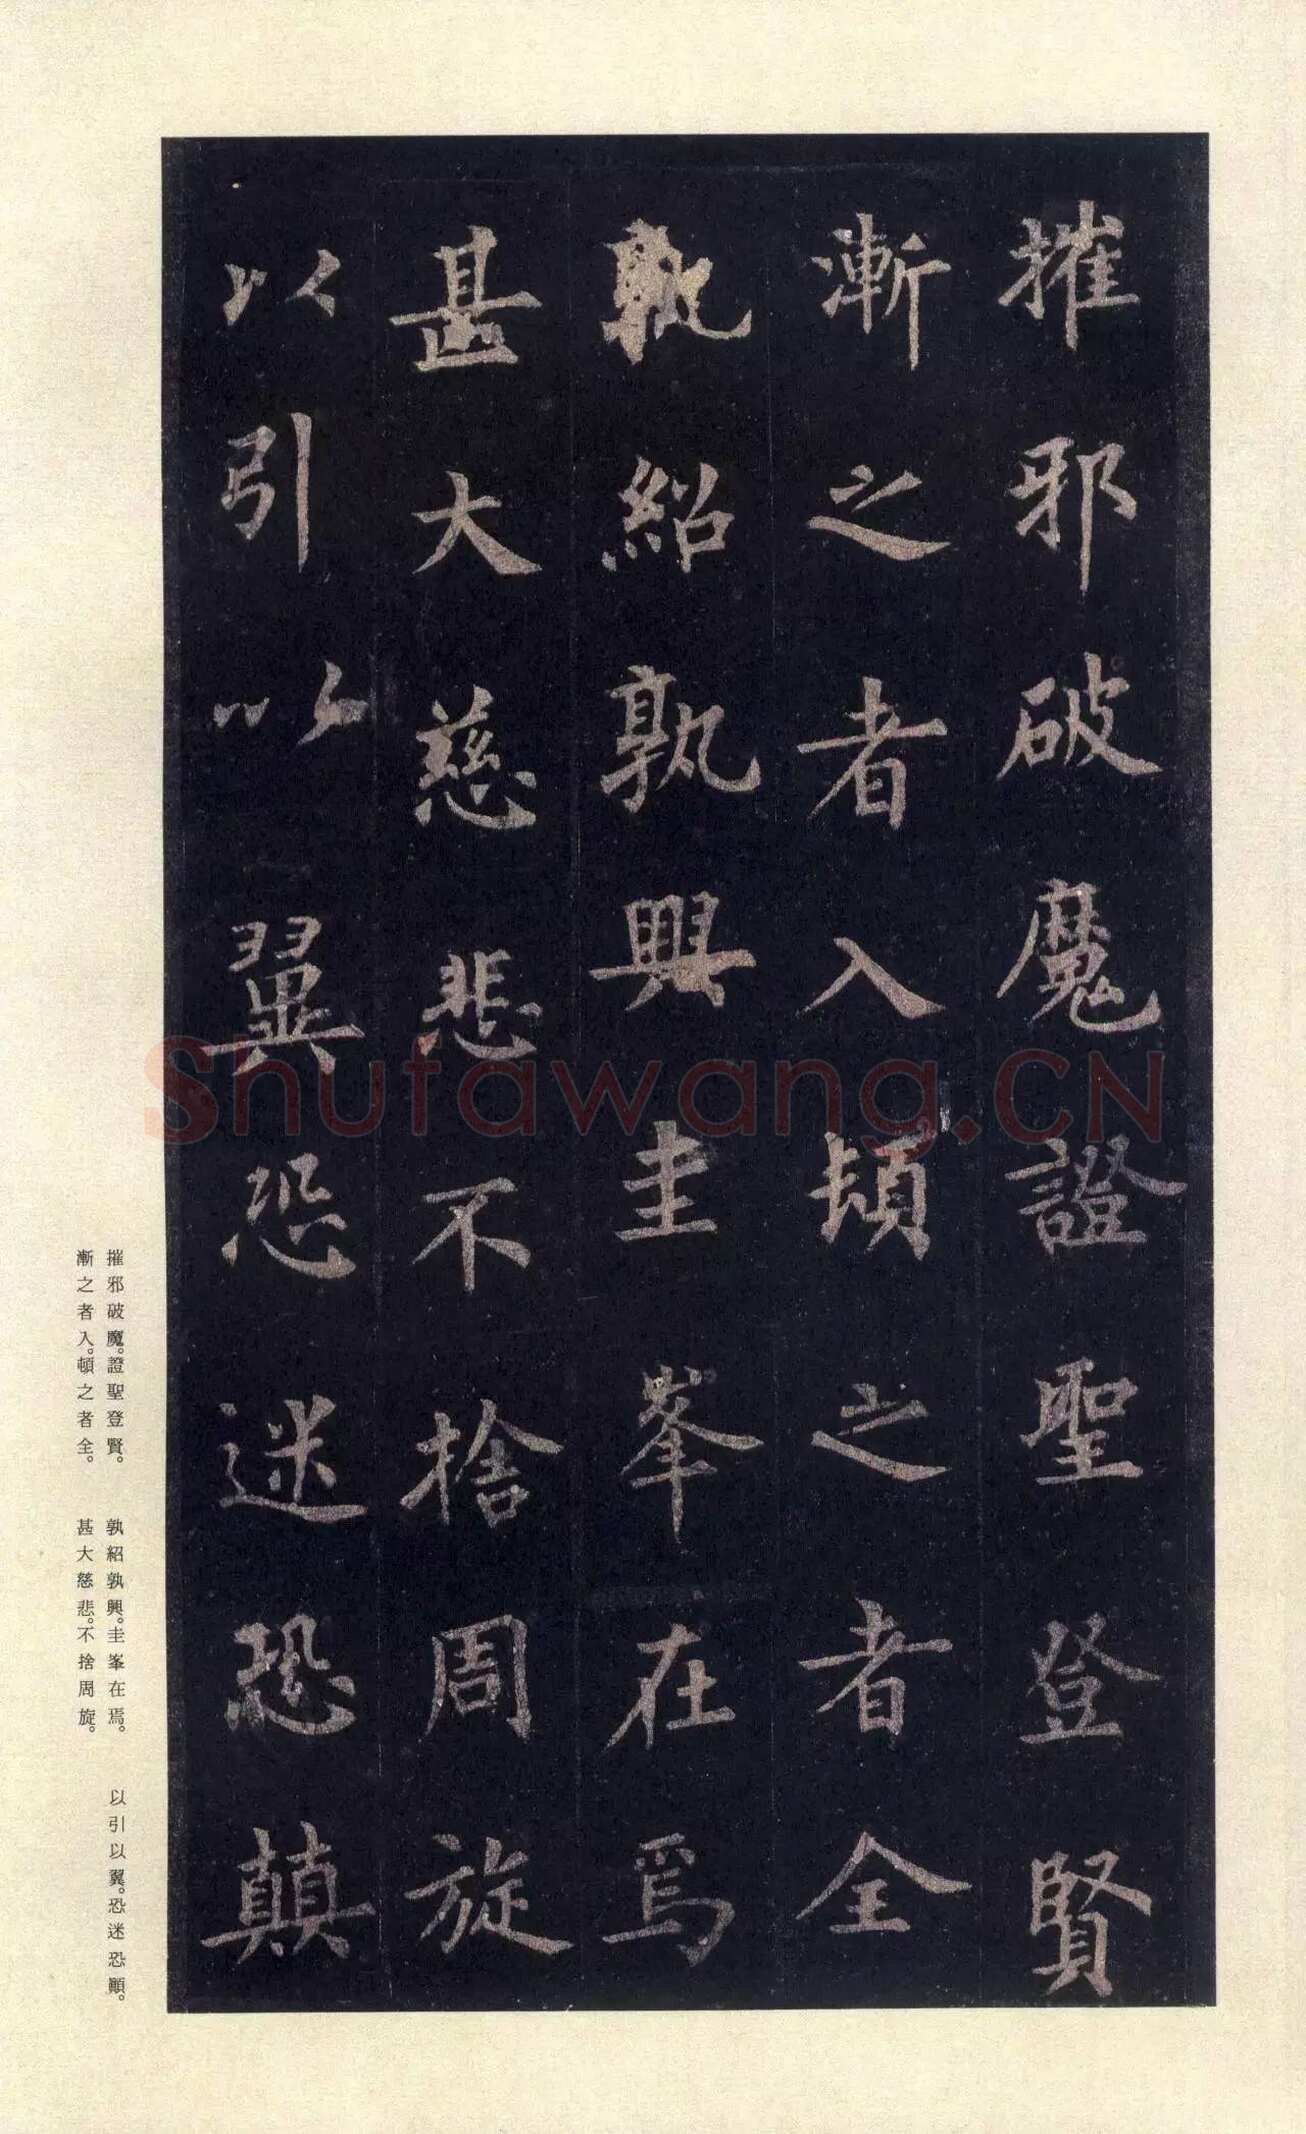 摧邪破魔證聖登賢
漸之者入頓之者全
孰紹孰興圭峯在焉
甚大慈悲不捨周旋
以引以翼恐迷恐顛
Shufawang.CN
摧邪破魔。證聖登賢。
漸之者入。頓之者全。
孰紹孰興。圭峯在焉。
甚大慈悲。不捨周旋。
以引以翼。恐迷恐顚。